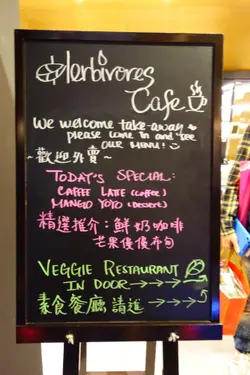 Herbivores
Cafe
We welcome take-away
please come in and see
OUR MENU!
~歡迎外賣~
TODAY'S SPECIAL:
CAFFEE LATTE (Coffee)
MANGO YOYO (Dessert)
精選推介：鮮奶咖啡
芒果優優布甸
VEGGIE RESTAURANT
IN DOOR
素食餐廳 請進